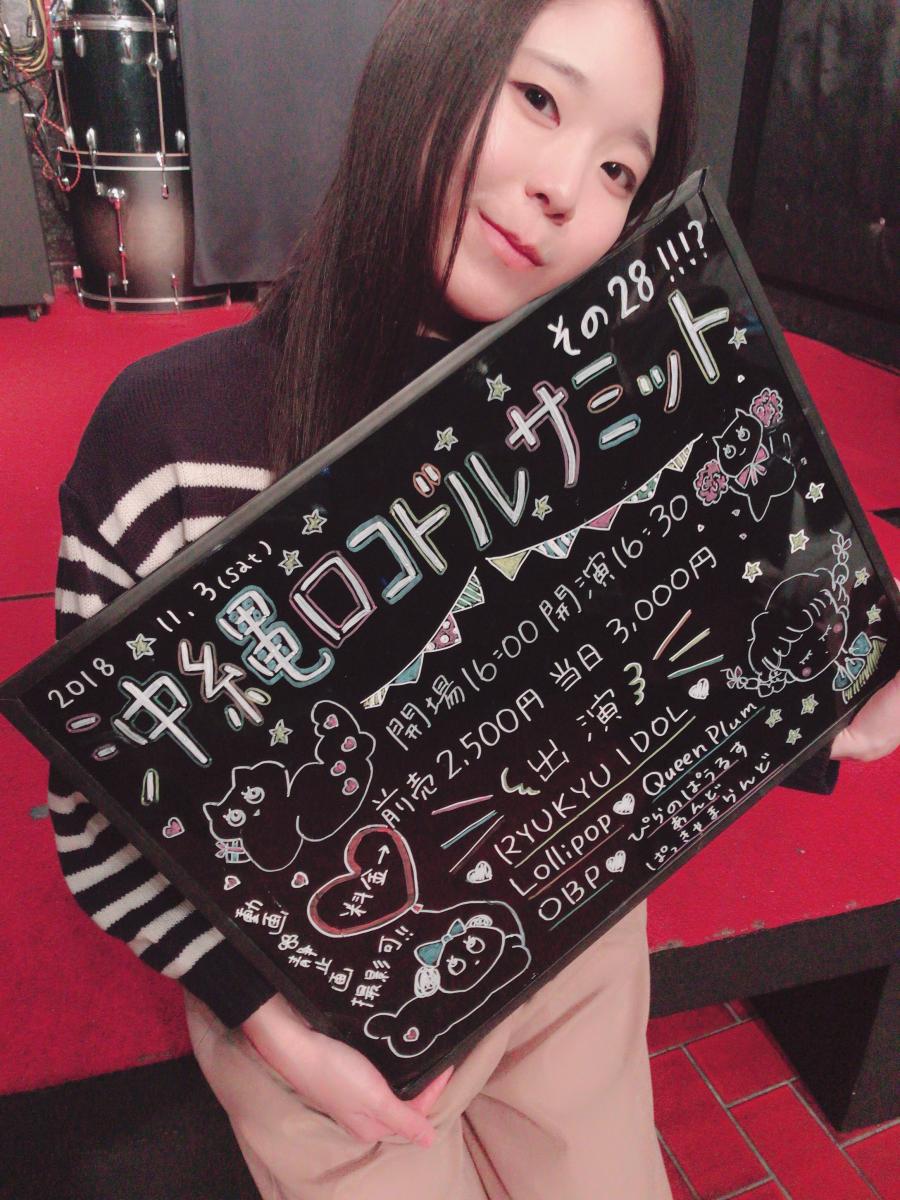 2018 11.3(sat)
沖縄ロコドルサミット
その28!!!?
開場16:00 開演16:30
前売2,500円 当日3,000円
料金→
出演
RYUKYU IDOL
Lollipop Queen Plum
OBP ぴらのぱうるす
あんど
ぱっきゃまらんど
動画
静止画
撮影可!!